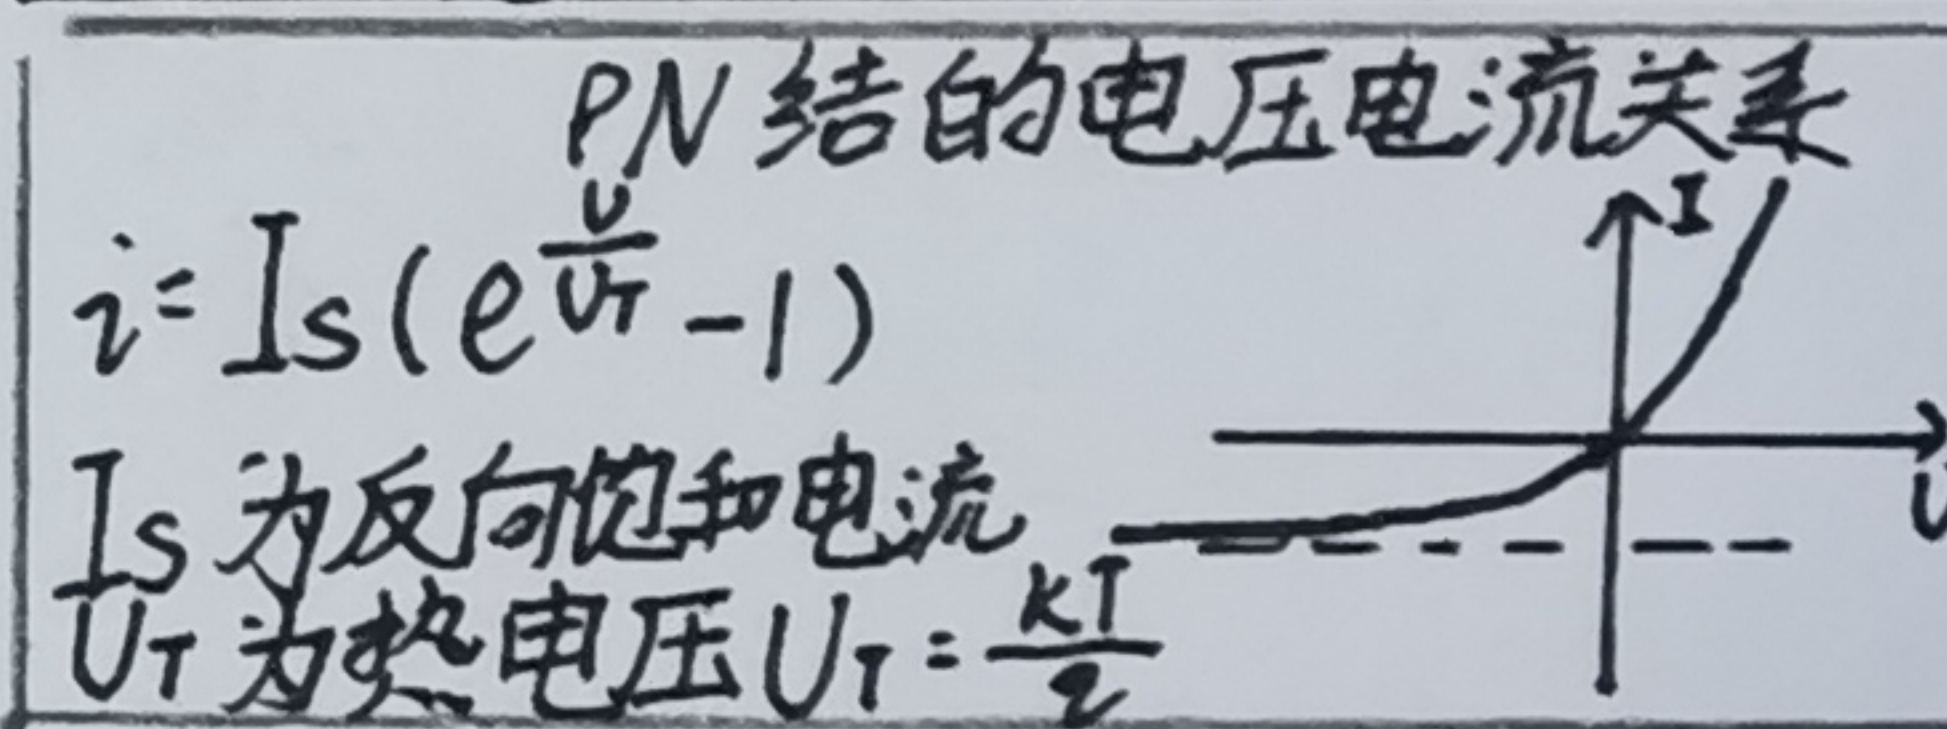 PN结的电压电流关系
i=Is(e^{\frac{U}{U_T}}-1)
I
U
Is为反向饱和电流
U_T为热电压U_T=\frac{kT}{q}